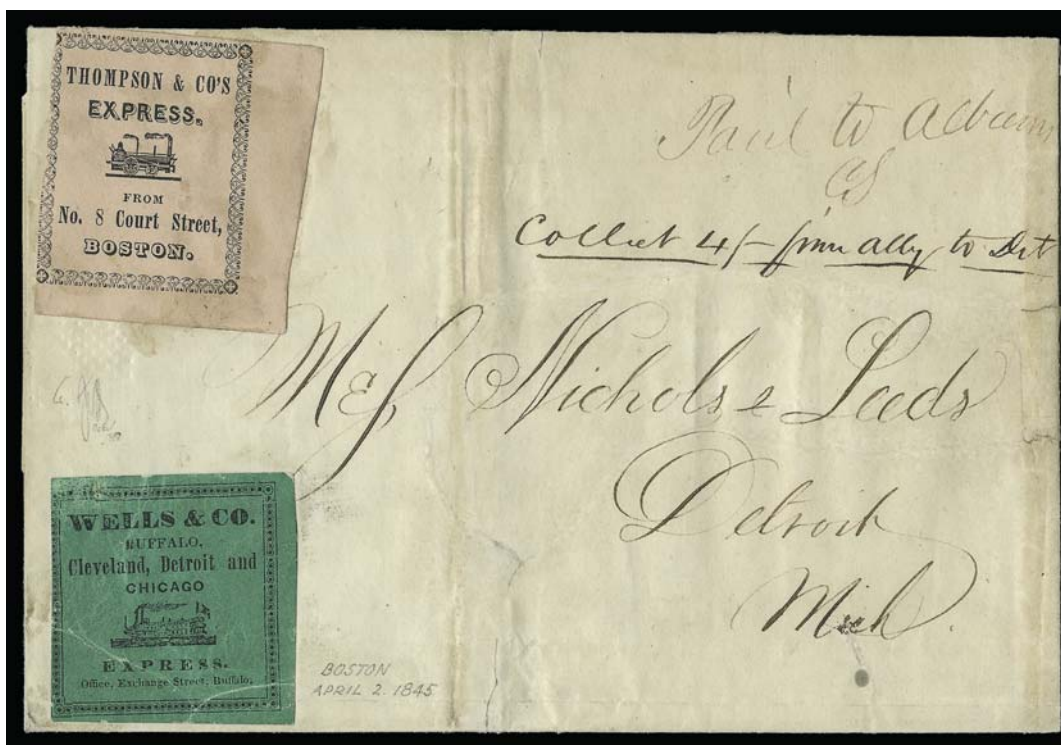 THOMPSON & CO'S
EXPRESS.
FROM
No. 8 Court Street,
BOSTON.
Paid to Albany
Collect 4/- from Alby to Det
Mess Nichols & Leeds
Detroit
Mich.
WELLS & CO.
BUFFALO,
Cleveland, Detroit and
CHICAGO
EXPRESS.
Office, Exchange Street, Buffalo,
BOSTON
APRIL 2. 1845